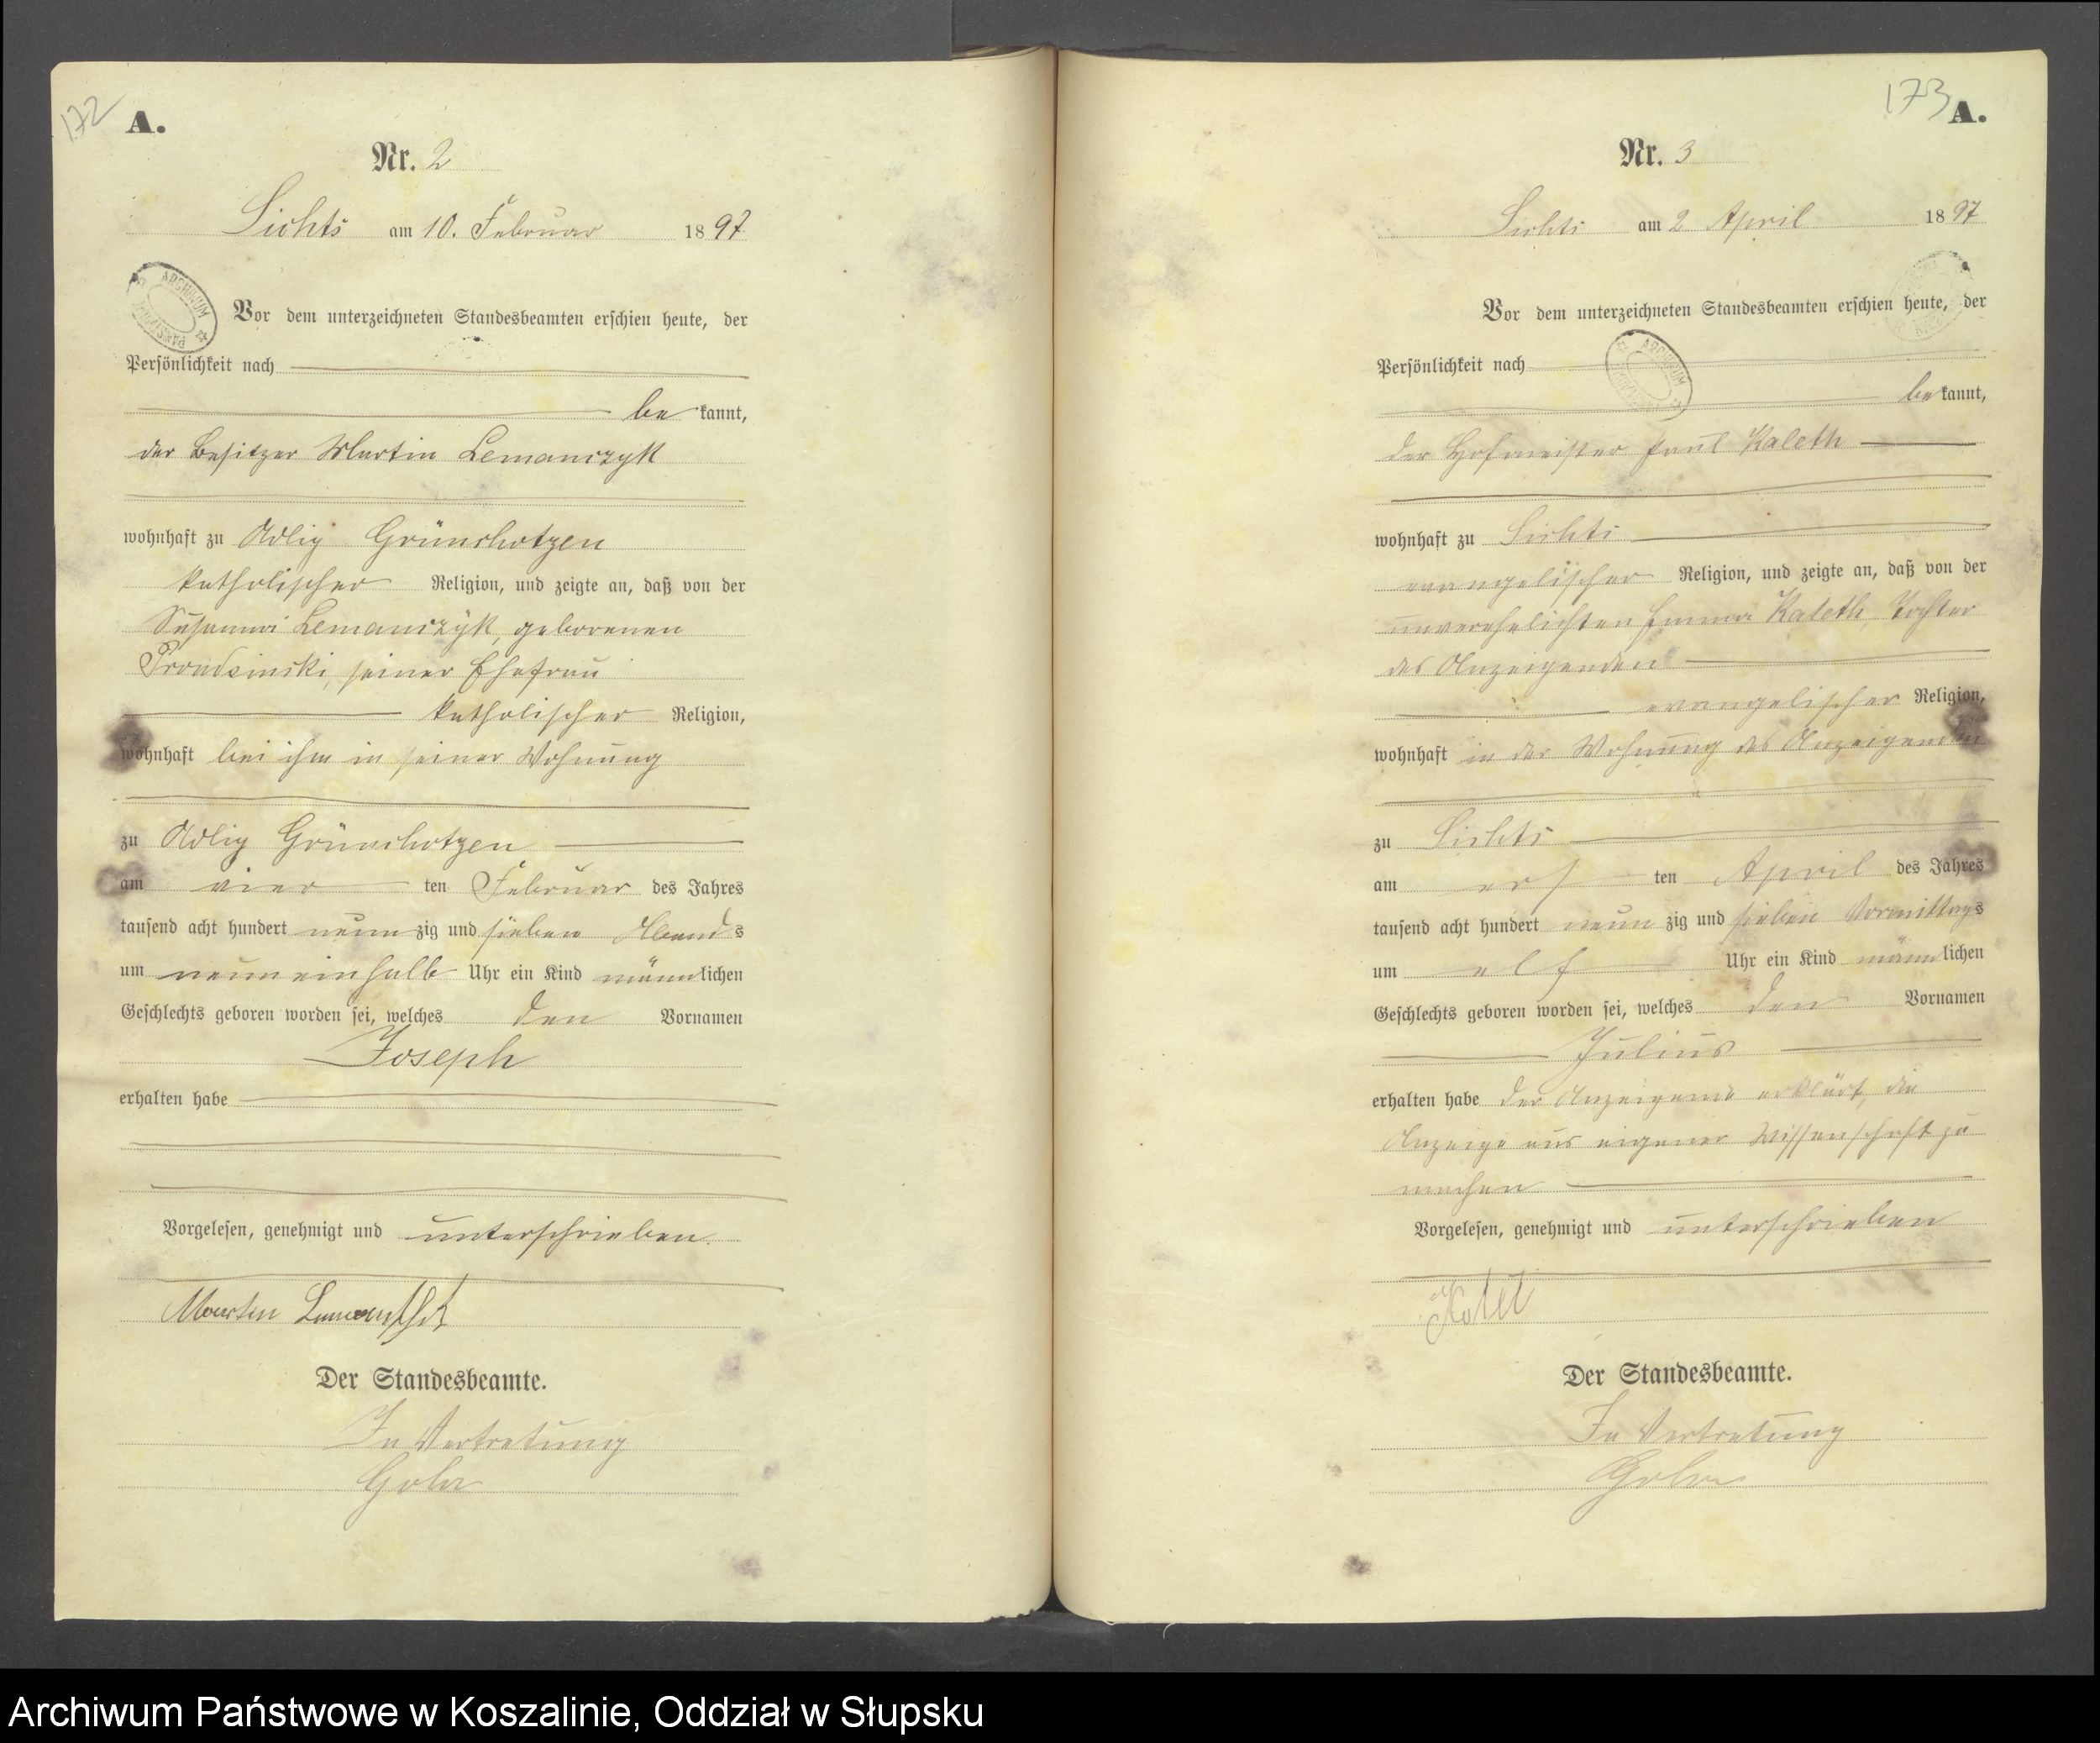 172
A.
Nr. 2
Lichts am 10. Februar 1897
ARCHIWUM
Vor dem unterzeichneten Standesbeamten erschien heute, der
Persönlichkeit nach
be kannt,
der Besitzer Martin Lemanczyk
wohnhaft zu Adlig Grünchotzen
katholischer Religion, und zeigte an, daß von der
Susanna Lemanczÿk, geborenen
Prondzinski, seiner Ehefrau
katholischer Religion,
wohnhaft bei ihm in seiner Wohnung
zu Adlig Grünchotzen
am vier ten Februar des Jahres
tausend acht hundert neun zig und sieben Abends
um neuneinhalb Uhr ein Kind männlichen
Geschlechts geboren worden sei, welches den Vornamen
Joseph
erhalten habe
Vorgelesen, genehmigt und unterschrieben.
Martin
Der Standesbeamte.
In Vertretung
173
A.
Nr. 3
Lichts am 2 April 1897
Vor dem unterzeichneten Standesbeamten erschien heute, der
ARCHIWUM
Persönlichkeit nach
be kannt,
der Hofmeister Paul Kaleth
wohnhaft zu Lichts
evangelischer Religion, und zeigte an, daß von der
unverehelichten Emma Kaleth Tochter
des Anzeigenden
evangelischer Religion,
wohnhaft in der Wohnung des Anzeigenden
zu Lichts
am ers ten April des Jahres
tausend acht hundert neun zig und sieben Vormittags
um elf Uhr ein Kind männlichen
Geschlechts geboren worden sei, welches den Vornamen
Julius
erhalten habe der Anzeigende erklärt, die
Anzeige aus eigener Wissenschaft zu
machen
Vorgelesen, genehmigt und unterschrieben
Der Standesbeamte.
In Vertretung
Archiwum Państwowe w Koszalinie, Oddział w Słupsku